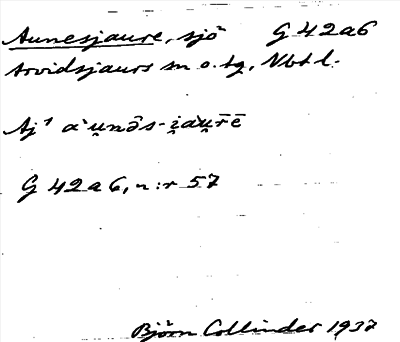 Aunesjaure, sjö G 42a6
Arvidsjaurs sn o. tg, Nbtl.
Aj¹ a`u̯nə̂s-i̯au̯rē
G 42a6, n:r 57
Björn Collinder 1937